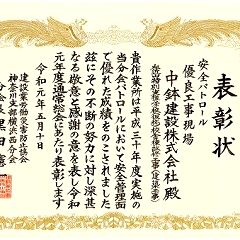 表彰状
安全パトロール
優良工事現場
中鉢建設株式会社 殿
貴作業所は平成三十年度実施の
当分会パトロールにおいて安全管理面
で優れた成績をのこされました
茲にその不断の努力に対し深甚
なる敬意と感謝の意を表し令和
元年度通常総会にあたり表彰します
令和元年五月十日
建設業労働災害防止協会
神奈川支部横浜西分会